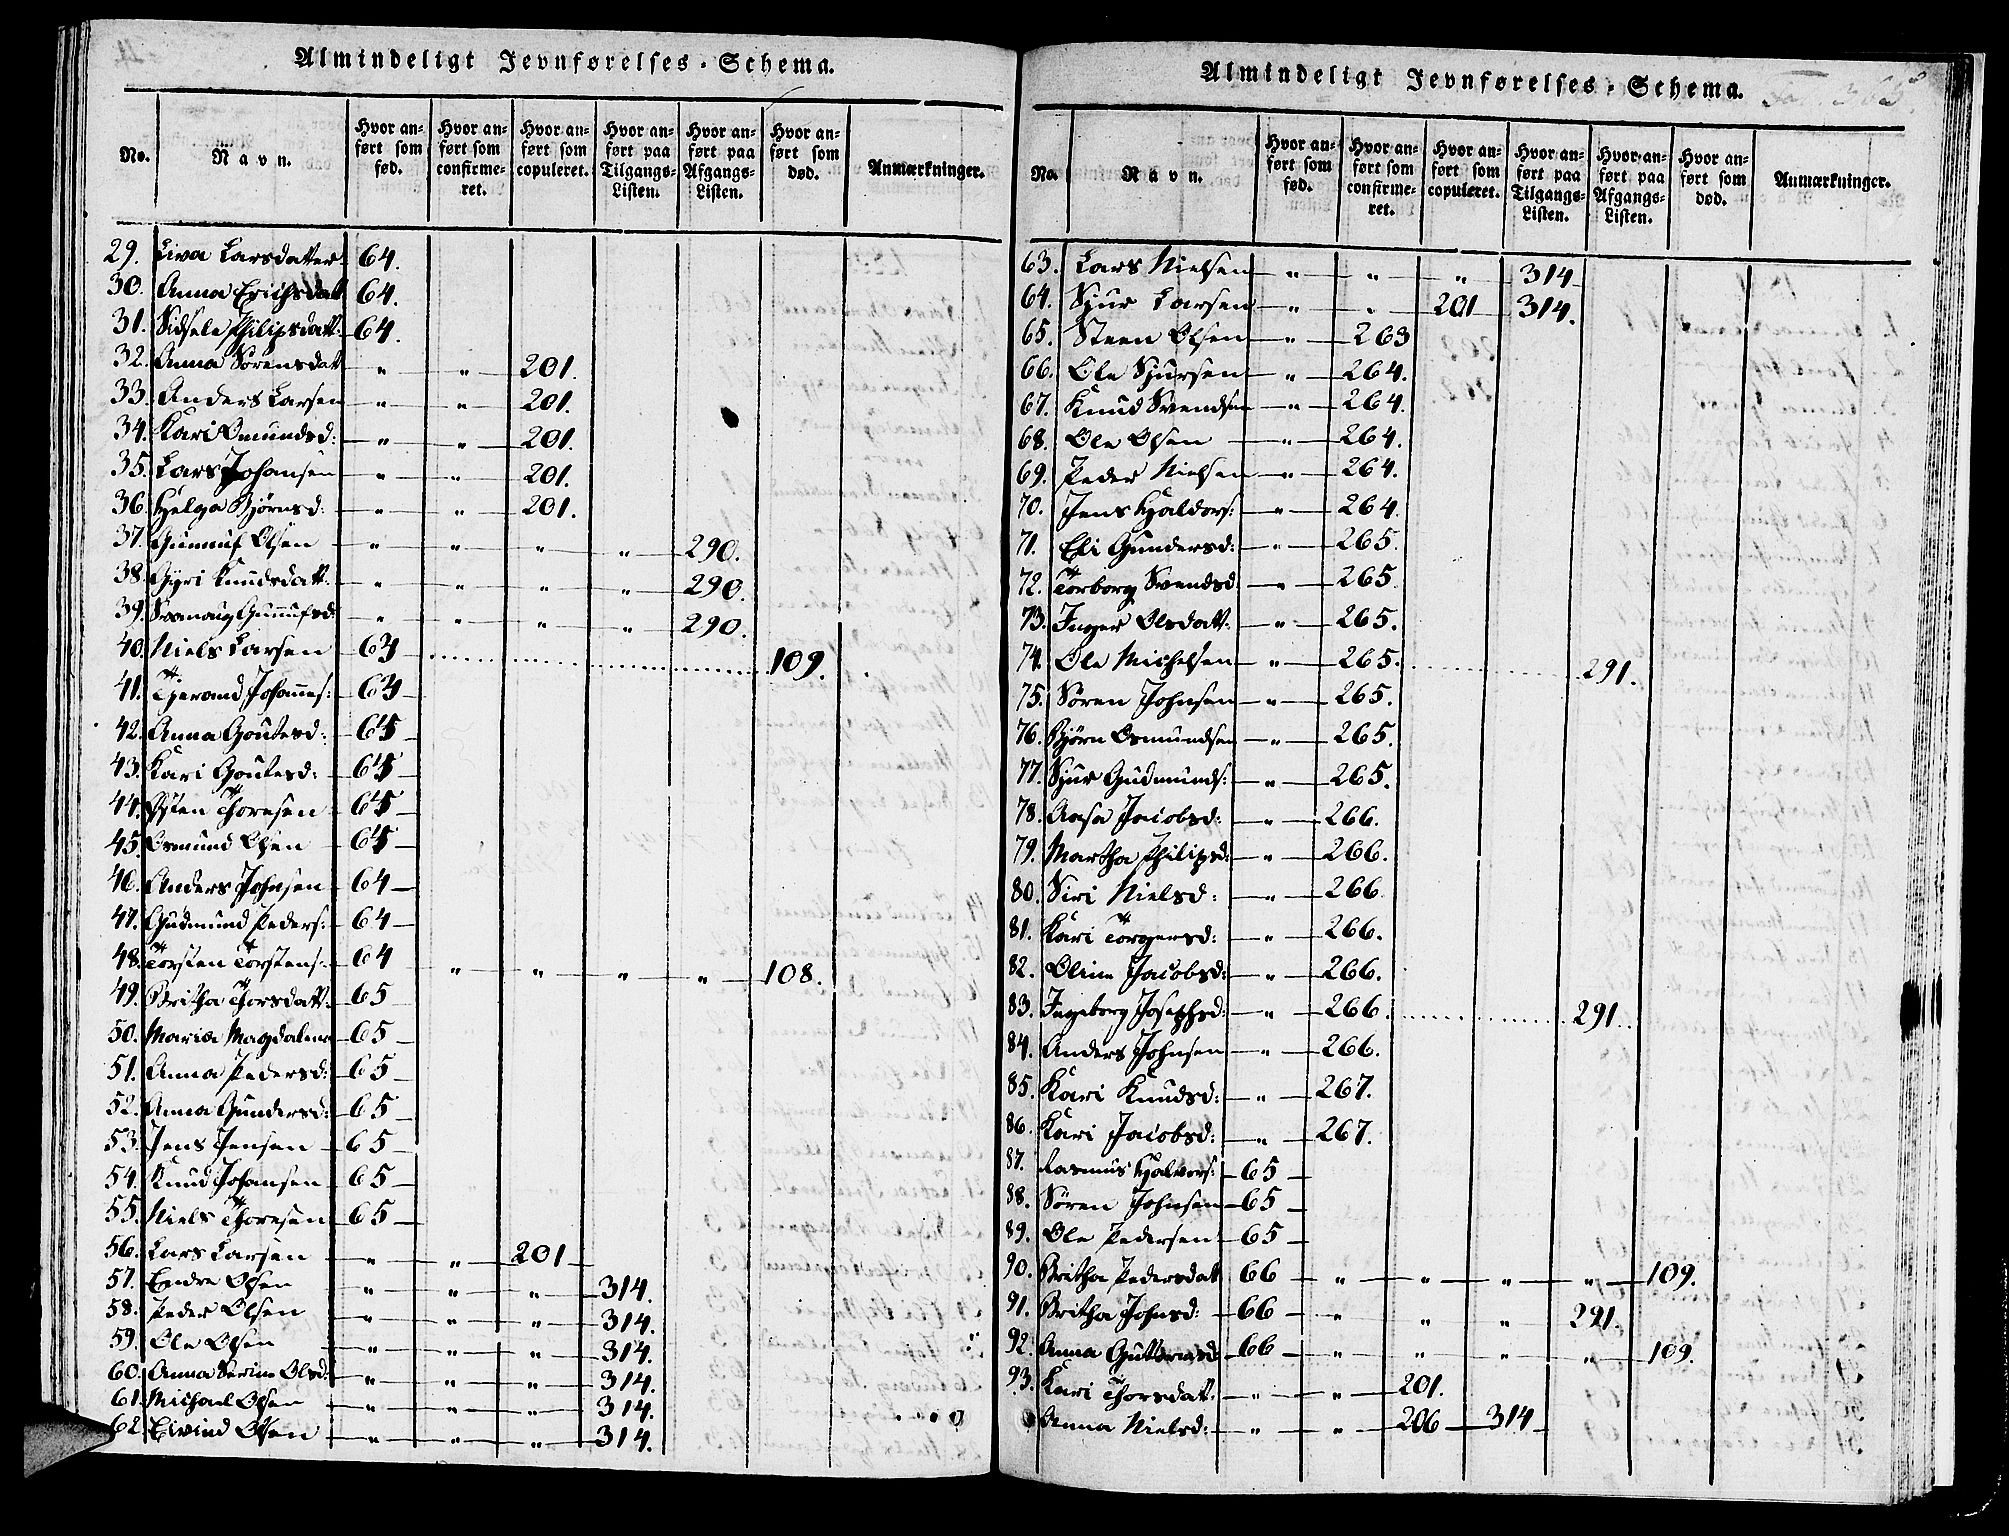 Almindeligt Jevnførelses-Schema.
No. Navn. Hvor anført som fød. Hvor anført som confirmeret. Hvor anført som copuleret. Hvor anført paa Tilgangs-Listen. Hvor anført paa Afgangs-Listen. Hvor anført som død. Anmærkninger.
29. Siva Larsdatter 64.
30. Anna Erichsdatt 64.
31. Sidsele Philipsdatt. 64.
32. Anna Sørensdat " " 201.
33. Anders Larsen " " 201.
34. Kari Omundsd: " " 201.
35. Lars Johansen " " 201.
36. Helga Bjørnsd: " " 201.
37. Gunnuf Olsen " " " " 290.
38. Gyri Knudsdatt. " " " " 290.
39. Gunnufsd: " " " " 290.
40. Niels Larsen 64 109.
41. Tjerand Johannes: 64
42. Anna Goutesd: 65
43. Kari Goutesd: 65
44. Østen Thoresen 65
45. Osmund Olsen 65
46. Anders Johnsen 64
47. Gudmund Peders: 64
48. Torsten Torstens: 64 " " " " 108.
49. Britha Thorsdatt. 65
50. Maria Magdalena 65
51. Anna Pedersd: 65
52. Anna Gundersd: 65
53. Jens Jensen 65
54. Knud Johansen 65
55. Niels Thoresen 65
56. Lars Larsen " " 201
57. Endre Olsen " " " 314.
58. Peder Olsen " " " 314.
59. Ole Olsen " " " 314.
60. Anna Serine Olsd: " " " 314.
61. Michael Olsen " " " 314.
62. Eivind Olsen " " " 314.
Almindeligt Jevnførelses-Schema.
No. Navn. Hvor anført som fød. Hvor anført som confirmeret. Hvor anført som copuleret. Hvor anført paa Tilgangs-Listen. Hvor anført paa Afgangs-Listen. Hvor anført som død. Anmærkninger.
63. Lars Nielsen " " " 314
64. Sjur Larsen " " 201 314.
65. Steen Olsen " 263
66. Ole Sjursen " 264.
67. Knud Svendsen " 264.
68. Ole Olsen " 264.
69. Peder Nielsen " 264.
70. Jens Hjaldors: " 264.
71. Eli Gundersd: " 265.
72. Torborg Svendsd " 265.
73. Inger Olsdatt. " 265.
74. Ole Michelsen " 265. 291.
75. Sören Johnsen " 265.
76. Bjørn Osmundsen " 265.
77. Sjur Gudmunds: " 265.
78. Aasa Jacobsd: " 266.
79. Martha Philipsd: " 266.
80. Siri Nielsd: " 266.
81. Kari Torgersd: " 266.
82. Oline Jacobsd: " 266.
83. Ingeborg Josephsd: " 266. 291.
84. Anders Johnsen " 266.
85. Kari Knudsd: " 267.
86. Kari Jacobsd: " 267.
87. Rasmus Hjalvors: 65
88. Sören Johnsen 65
89. Ole Pedersen 65
90. Britha Pedersdat 66 " " " " 109.
91. Britha Johnsd: 66 " " " 291.
92. Anna Guttormsd 66 " " " " 109.
93. Kari Thorsdatt. " " 201.
Anna Nielsd: " " 206 314